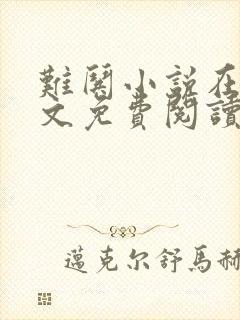 難關小説在
文免費閱讀
邁克尔舒馬赫